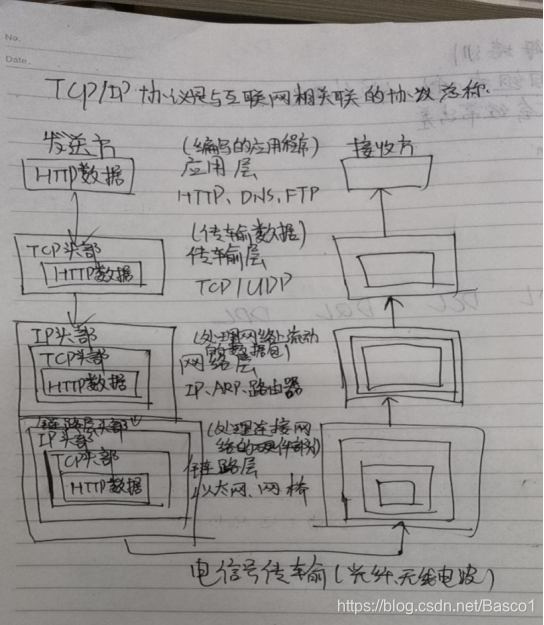 No.
Date.
TCP/IP 协议是与互联网相关联的协议总称.
发送方
(编写的应用程序)
接收方
HTTP数据
应用层
HTTP、DNS、FTP
TCP头部
HTTP数据
(传输数据)
传输层
TCP/UDP
IP头部
TCP头部
HTTP数据
(处理网络上流动
的数据包)
网络层
IP、ARP、路由器
链路层头部
IP头部
TCP头部
HTTP数据
(处理连接网
络的硬件部分)
链路层
以太网、网桥
电信号传输(光纤、无线电波)
https://blog.csdn.net/Basco1